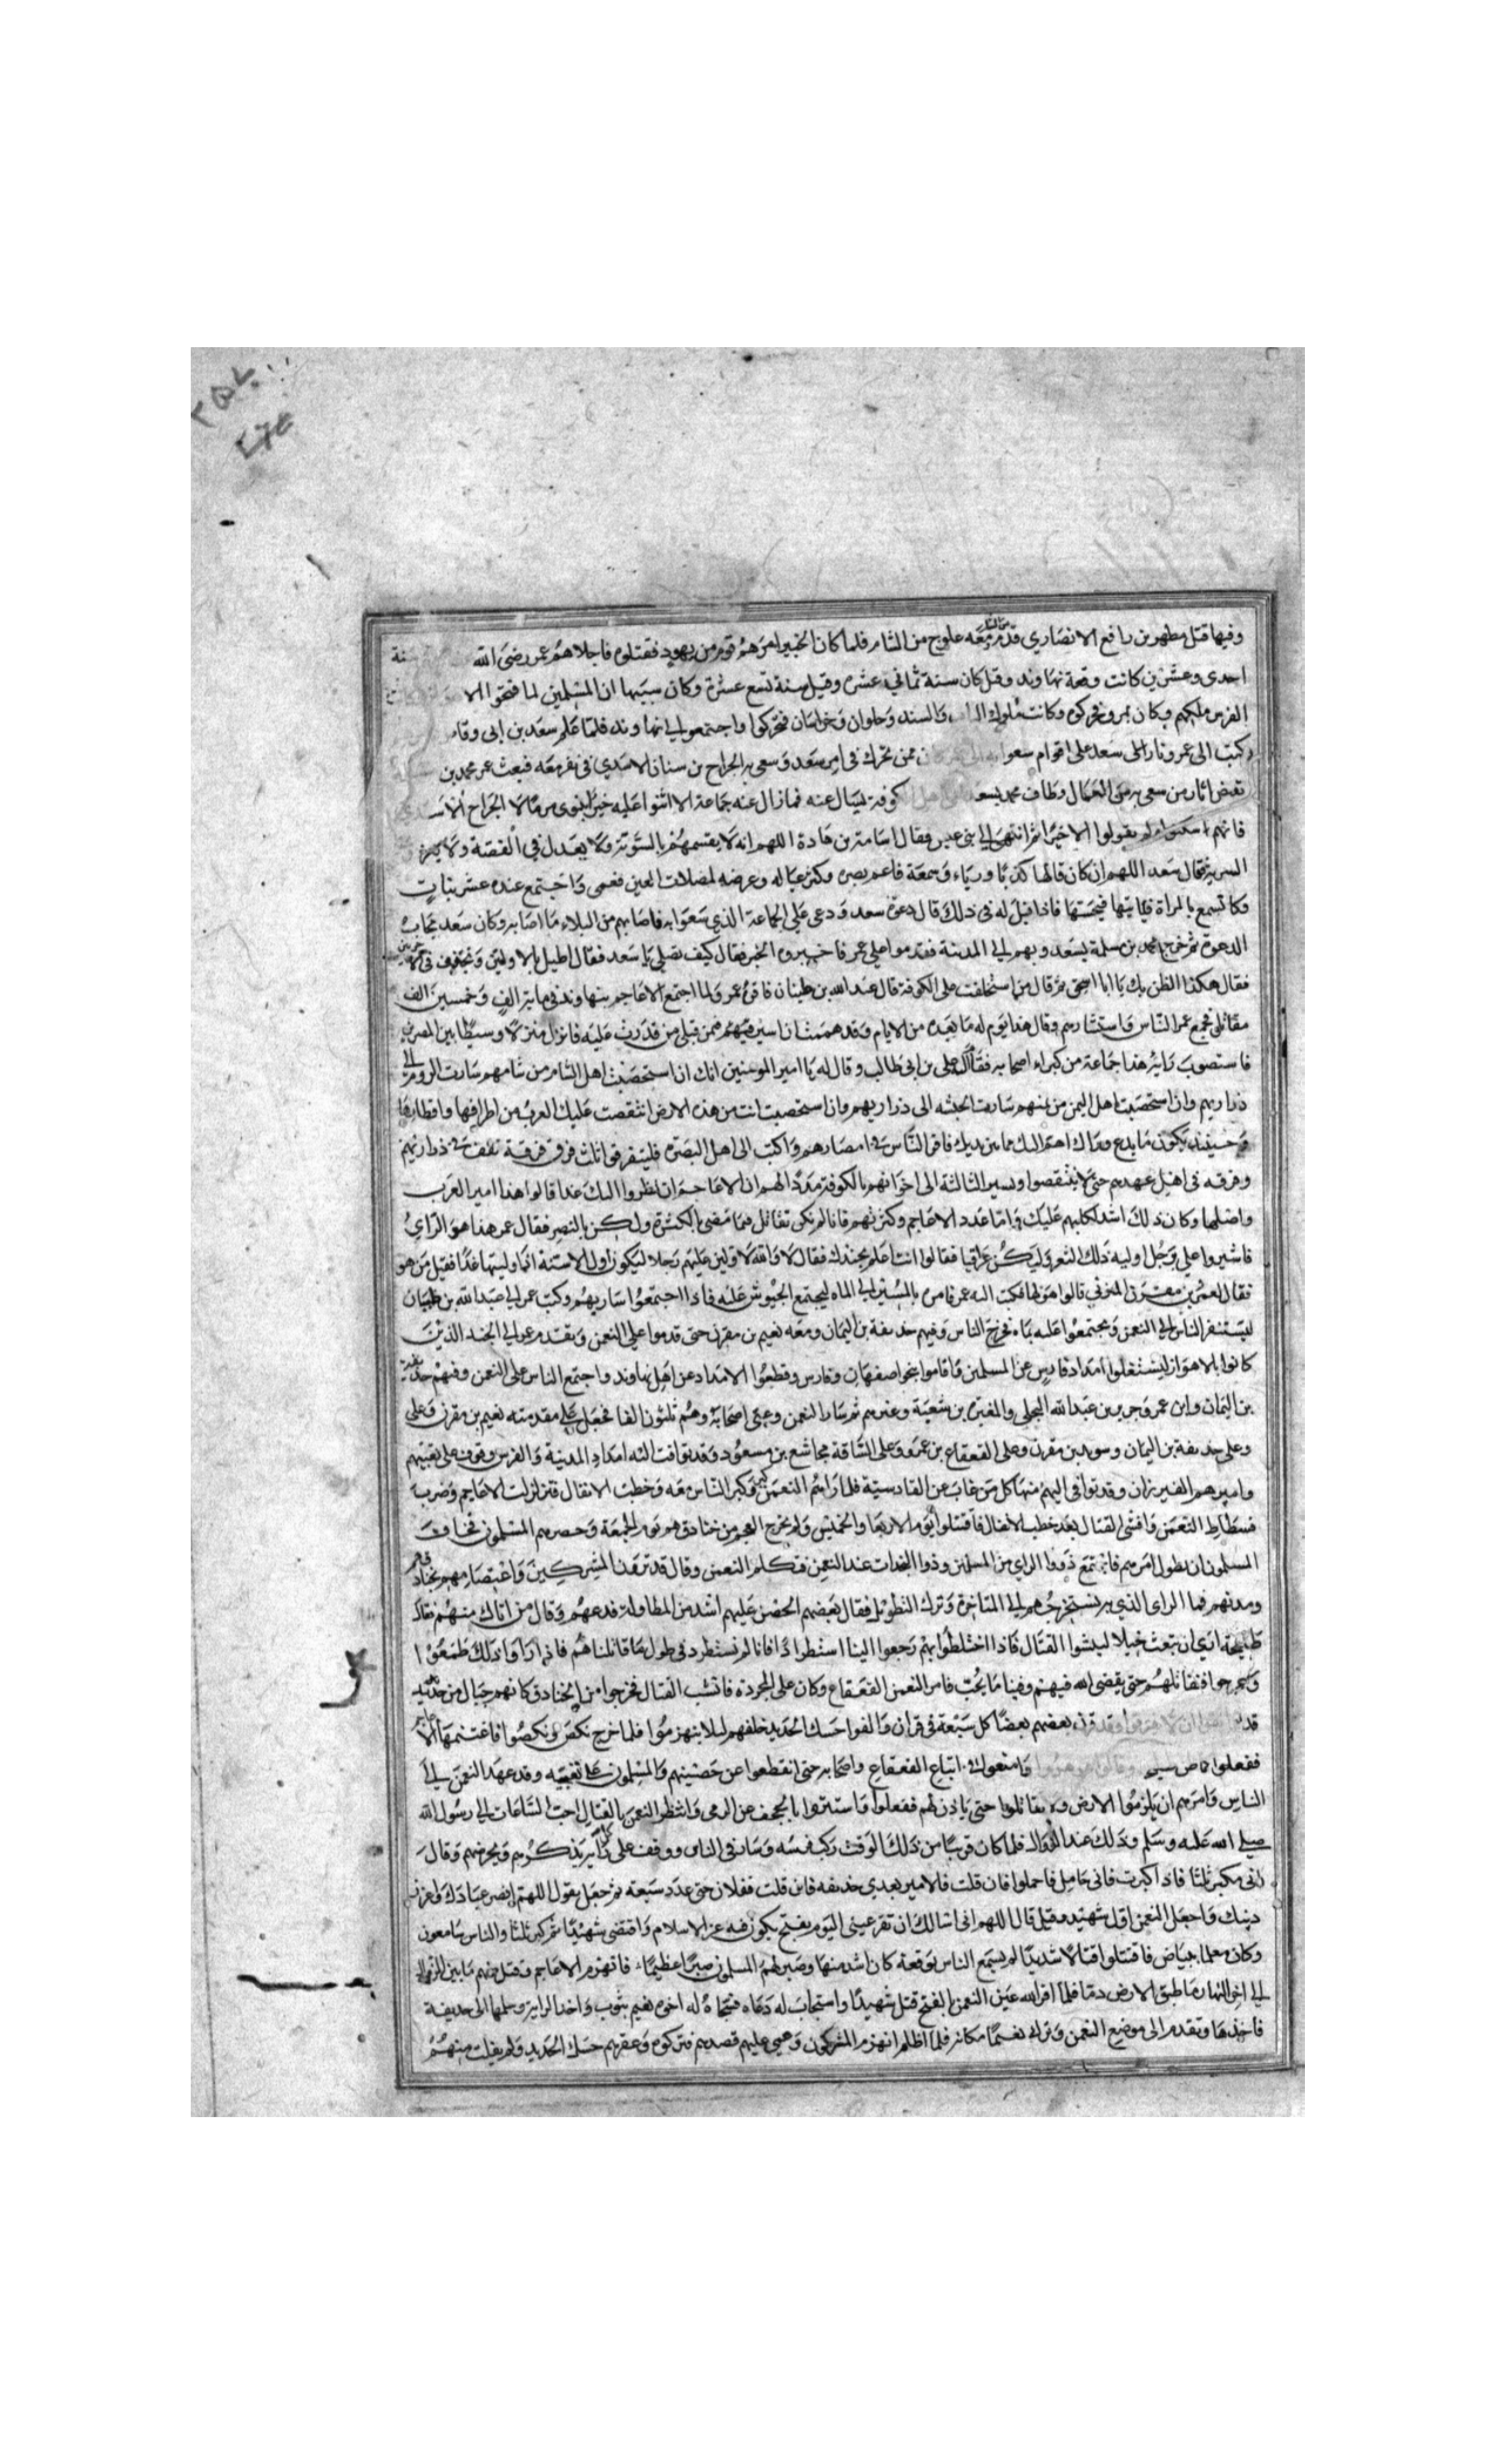 وفيها قتل مطهر بن رافع الانصاري قدم من الشام معه علوج من الشام فلما كان بخيبر امرهم قوم من يهود فقتلوه فاجلاهم عمر رضي الله
احدى وعشرين كانت وقعة نهاوند وقيل كان سنة ثماني عشره وقيل سنة تسع عشرة وكان سببها ان المسلمين لما فتحوا الا
الفرس ملكهم وكان بمرو فحركوه وكانت ملوك الباب والسند وحلوان وخراسان فتحركوا واجتمعوا الى نهاوند فلما علم سعد بن ابى وقاص
كتب الى عمر وثار على سعد على اقوام سعوا به ممن تحرك في امر سعد وسعى به الجراح بن سنان الاسدي في نفر معه فبعث عمر محمد بن
العمال وطاف محمد بسعد كوفة يسال عنه فما زال عنه جماعة الا اثنوا عليه خيرا سوى من مالا الجراح الاسدي
فانهم سكتوا ولم يقولوا الا خيرا ثم انتهى الى بنى عبس فقال اسامة بن قتادة اللهم انه لا يقسم بالسوية ولا يعدل في القضية ولا يغزو
السرية فقال سعد اللهم ان كان قالها كذبا ورياء وسمعة فاعم بصره وكثر عياله وعرضه لمضلات الفتن فعمى واجتمع عنده عشر بنات
وكان يسمع بالمراة فياتيها فيجسها فاذا قيل له في ذلك قال دعوة سعد ودعى على الجماعة الذي سعوا به فاصابهم من البلاء ما اصابه وكان سعد مجاب
الدعوة ثم خرج محمد بن مسلمة بسعد وبهم الى المدينة فقدموا على عمر فاخبروه الخبر فقال كيف تصلى يا سعد فقال اطيل بالاولتين واخفف في الاخريين
فقال هكذا الظن بك يا ابا اسحق ثم قال من استخلفت على الكوفة قال عبد الله بن عتبان فاقره عمر ولما اجتمع الاعاجم بنهاوند في ماية الف وخمسين الف
مقاتل فجمع عمر الناس واستشارهم وقال هذا يوم له ما بعده من الايام وقد هممت ان اسير فيهم فمن قبلى من قدرت عليه فانزل منزلا وسيطا بين المصرين
فاستصوب رايه هذا جماعة من كبراء اصحابه فقال له على بن ابى طالب وقال له يا امير المومنين انك ان استحضبت اهل الشام من شامهم سارت الروم الى
ذراريهم وان استحضبت اهل اليمن من يمنهم سارت الحبشه الى ذراريهم وان استحضبت انت من هذه الارض انتقصت عليك العرب من اطرافها واقطارها
وحينيذ يكون ما تدع وراك اهم اليك مما بين يديك فاقر الناس في امصارهم واكتب الى اهل البصره فليتفرقوا ثلث فرق فرقة تقف في ذراريهم
وفرقه في اهل عهدهم حتى لا ينتقصوا وتسير الثالثة الى اخوانهم بالكوفة مددا لهم ان الاعاجم ان نظروا اليك غدا قالوا هذا امير العرب
واصلها وكان ذلك اشد لكلبهم عليك واما عدد الاعاجم وكثرتهم فانا لم نكن نقاتل فيما مضى بالكثرة ولكن بالنصر فقال عمر هذا هو الراى
فاشيروا على برجل اوليه ذلك الثغر وليكن عراقيا فقالوا انت اعلم بجندك فقال لا والله لا ولين عليهم رجلا ليكون اول الاسنه اذا وليتها غدا فقيل من هو
فقال النعمن بن مقرن المزني قالوا هو لها فكتب اليه عمر فامره بالمسير الى الماه ليجتمع الجيوش عليه فاذا اجتمعوا سار بهم وكتب عمر الى عبد الله بن عتبان
ليستنفر الناس الى النعمن ويجتمعوا عليه بماه فخرج الناس وفيهم حذيفة بن اليمان ومعه نعيم بن مقرن حتى قدموا على النعمن وتقدم عمر الى الجند الذين
كانوا بالاهواز ليشتغلوا امداد فارس عن المسلمين فاقاموا بنخوم اصفهان وفارس وقطعوا الامداد عن اهل نهاوند واجتمع الناس على النعمن وفيهم حذيفة
بن اليمان وابن عمر وجرير بن عبد الله البجلى والمغيرة بن شعبة وغيرهم ثم سار النعمن وعبى اصحابه وهم ثلثون الفا فجعل على مقدمته نعيم بن مقرن وعلى
وعلى حذيفة بن اليمان وسويد بن مقرن وعلى القعقاع بن عمرو وعلى الساقة مجاشع بن مسعود وقد توافت اليه امداد المدينة والفرس وقوف على تعبيتهم
واميرهم الفيرزان وقد توافى اليهم نهاوند كل من غاب عن القادسية فلما راهم النعمن كبر وكبر الناس معه وحطت الاثقال فتزلزلت الاعاجم وضرب
فسطاط النعمن وانشى القتال بعد حط الاثقال فاقتتلوا يوم الاربعا والخميس ولم يخرج العجم من خنادقهم يوم الجمعة وحصرهم المسلمون فخاف
المسلمون ان يطول امرهم فاجتمع ذووا الراي من المسلمين وذوا النجدات عند النعمن فتكلم النعمن وقال قد ترون المشركين واعتصامهم بخنادقهم
ومدنهم فما الراى الذي به نستخرجهم الى المناجزة وترك التطويل فقال بعضهم الحصن عليهم اشد من المطاولة فدعهم وقال من اتاك منهم فقال
طليحة ارى ان تبعث خيلا لينشبوا القتال فاذا اختلطوا بهم رجعوا الينا استطرادا فانا لم نستطرد في طول ما قاتلناهم فاذا راوا ذلك طمعوا
وخرجوا فنقاتلهم حتى يقضى الله فيهم وفينا ما يحب فامر النعمن القعقاع وكان على المجردة فانشب القتال فخرجوا من الخنادق كانهم جبال من حديد
قد بعضهم بعضا كل سبعة في قران والقوا حسك الحديد خلفهم ليلا ينهزموا فلما خرج نكص ونكصوا فاغتنمها
ففعلوا اتباع القعقاع واصحابه حتى انقطعوا عن حصنهم والمسلمون على تعبيه وقد عهد النعمن الى
الناس وامرهم ان يلزموا الارض ولا يقاتلوا حتى ياذن لهم ففعلوا واستتروا بالحجف عن الرمى وانتظر النعمن بالقتال احب الساعات الى رسول الله
صلى الله عليه وسلم وذلك عند الزوال فلما كان قريبا من ذلك الوقت ركب فرسه وسار في الناس ووقف على كل راية يذكرهم ويحرضهم وقال
انى مكبر ثلثا فاذا كبرت فانى حامل فاحملوا فان قلت فالامير بعدي حذيفه فان قلت ففلان حتى عدد سبعة ثم جعل يقول اللهم انصر عبادك واعز
دينك واجعل النعمن اول شهيد وقيل قال اللهم انى اسالك ان تقر عينى اليوم بفتح يكون فيه عز الاسلام واقتضى شهيدا ثم كبر ثلثا والناس سامعون
وكان معلما ببياض فاقتتلوا قتالا شديدا لم يسمع الناس بوقعة كان اشد منها وصبر لهم المسلمون صبرا عظيما وانهزم الاعاجم وقتل منهم ما بين الزوال
الى اخر النهار ما طبق الارض دما فلما اقر الله عين النعمن بالفتح قتل شهيدا واستجاب له دعاه فسجاه له اخوه نعيم بثوب واخذ الراية وسلمها الى حذيفة
فاخذها وتقدم الى موضع النعمن وترك نعيما مكانه فلما اظلم انهزم المشركون وعمى عليهم قصدهم فتركوه وعقرهم حسك الحديد ولم يفلت منهم